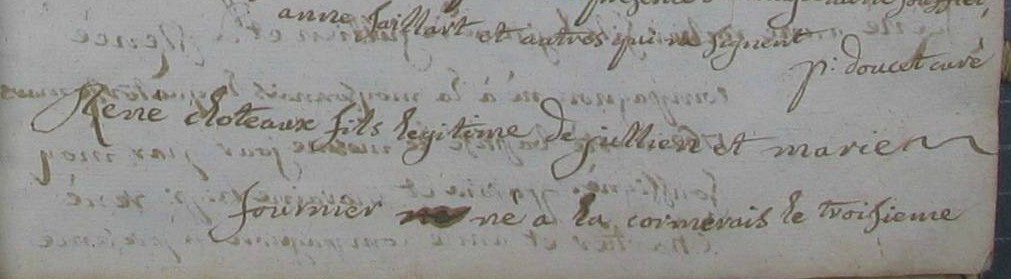 anne faillart et autres qui ne signent
p: doucet curé
Rene cloteaux fils legitime de jullien et marie
fournier ne a la cormerais le troisieme